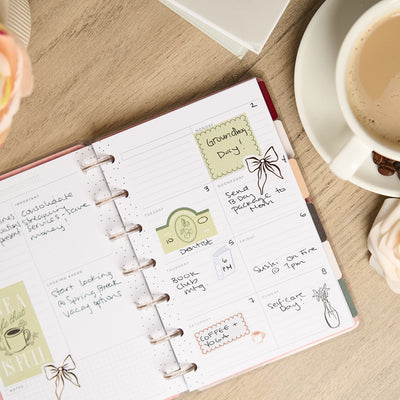 IMPORTANT
consolidate
streaming
services, save
money
LOOKING AHEAD
start looking
@ Spring Break
vacay options
TEA
IS FULL
NOTES
2
Groundhog
Day!
3
TUESDAY
10
Dentist
4
WEDNESDAY
Send
B Day
package to
Mom
5
THURSDAY
Book
club
mtg
6 PM
6
FRIDAY
Sushi on Fire
@ 7pm
7
SATURDAY
COFFEE +
YOGA
8
SUNDAY
Self-care
day